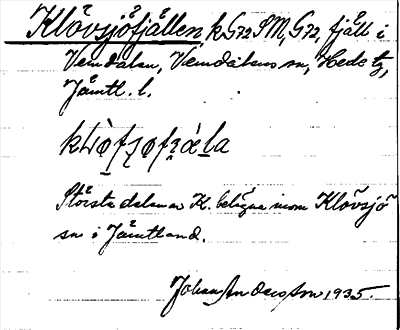 Klövsjöfjällen, k G72 SM, G72, fjäll i
Vemdalen, Vemdalens sn, Hede tg,
Jämtl. l.
Största delen av K. belägna inom Klövsjö
sn i Jämtland.
Johan Andersson 1935.